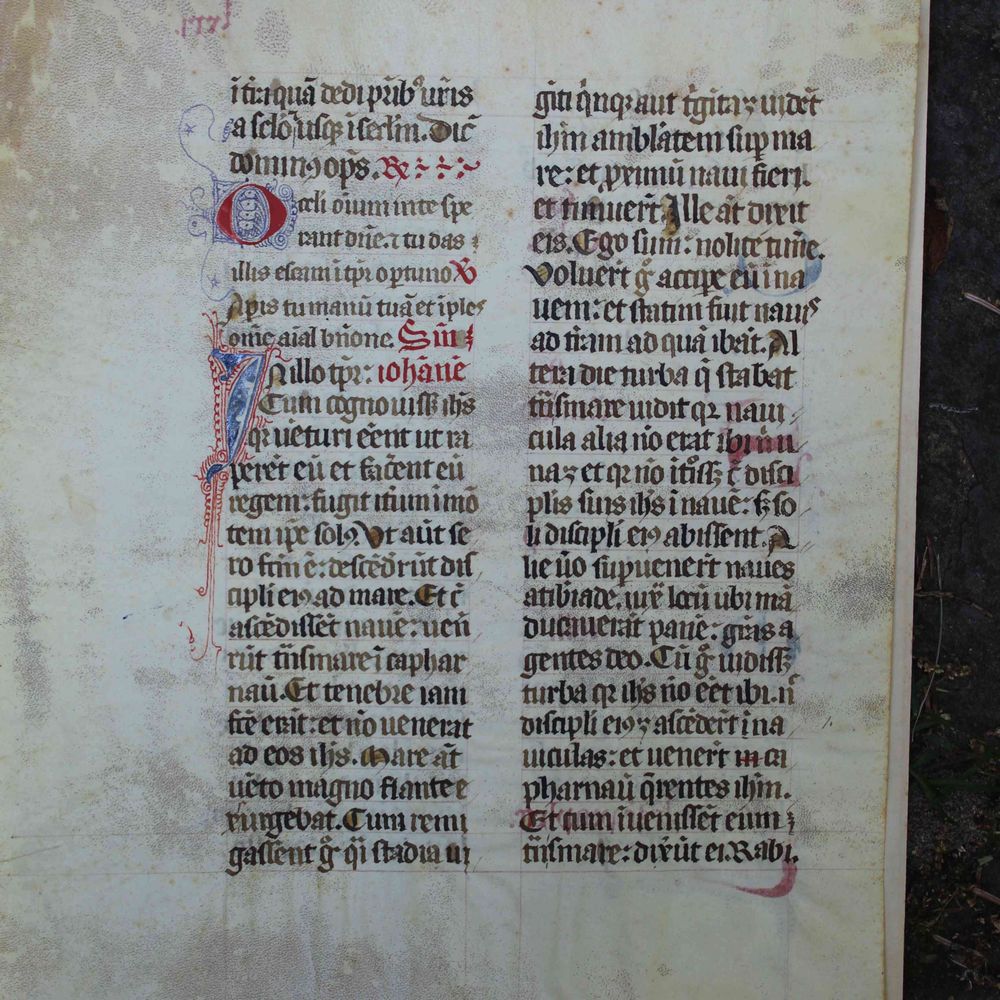 ī t̄ra quā dedi pr̄ib⁹ ur̄is
a sclo usq; ī sclm. Dic̄
dominus op̄s. R͞
Oculi oīum in te spe
rant dn̄e. ⁊ tu das
illis escam ī tp̄r optuno V
Apis tu manū tuā et īples
om̄e aīal bn̄one. Sūn
In illo tp̄r: iohānē
Cum cognouiss; ihs
qr uēturi eēnt ut ra
perēt eū et fac̄ent eū
regem: fugit itūm ī mō
tem ip̄e solꝯ. Ut aūt se
ro fc̄m ē: descēdr̄ūt dis
cipli eiꝯ ad mare. Et c̄
ascēdissēt nauē: uen̄
rūt tn̄smare ī caphar
naū. Et tenebre iam
fc̄e erāt: et nō uenerat
ad eos ihs. Mare āt
uēto magno flante e
xurgebat. Cum remi
gassent g̊ q̄i stadia ui
giti q̄nq; aut t̄gita ⁊ uidēt
ihm amblātem sup̄ ma
re: et p̄ximū naui fieri.
et timuer̄t Ille āt dixit
eis. Ego sum: nolite tim̄e.
Voluer̄t g̊ accipe eū ī na
uem: et statim fuit nauis
ad t̄ram ad quā ibāt. Al
tera die turba q̄ stabat
tn̄smare uidit qr naui
cula alia nō erat ibi n̄i u
na ⁊ et qr nō it̊iss; c̄ disci
plis suis ihs ī nauē: s; so
li discipli eiꝯ abissent. A
lie ůo sup̄uener̄t naues
atibiade. iuxͣ locū ubi mā
ducauerāt panē: grās a
gentes deo. Cū g̊ uidiss;
turba qr ihs nō eēt ibi. n̄
discipli eiꝯ ⁊ ascēder̄t ī na
uiculas: et uener̄t in ca
pharnaū q̄rentes ihm.
Et cum īuenissēt eum
tn̄smare: dixūt ei. Rabi.